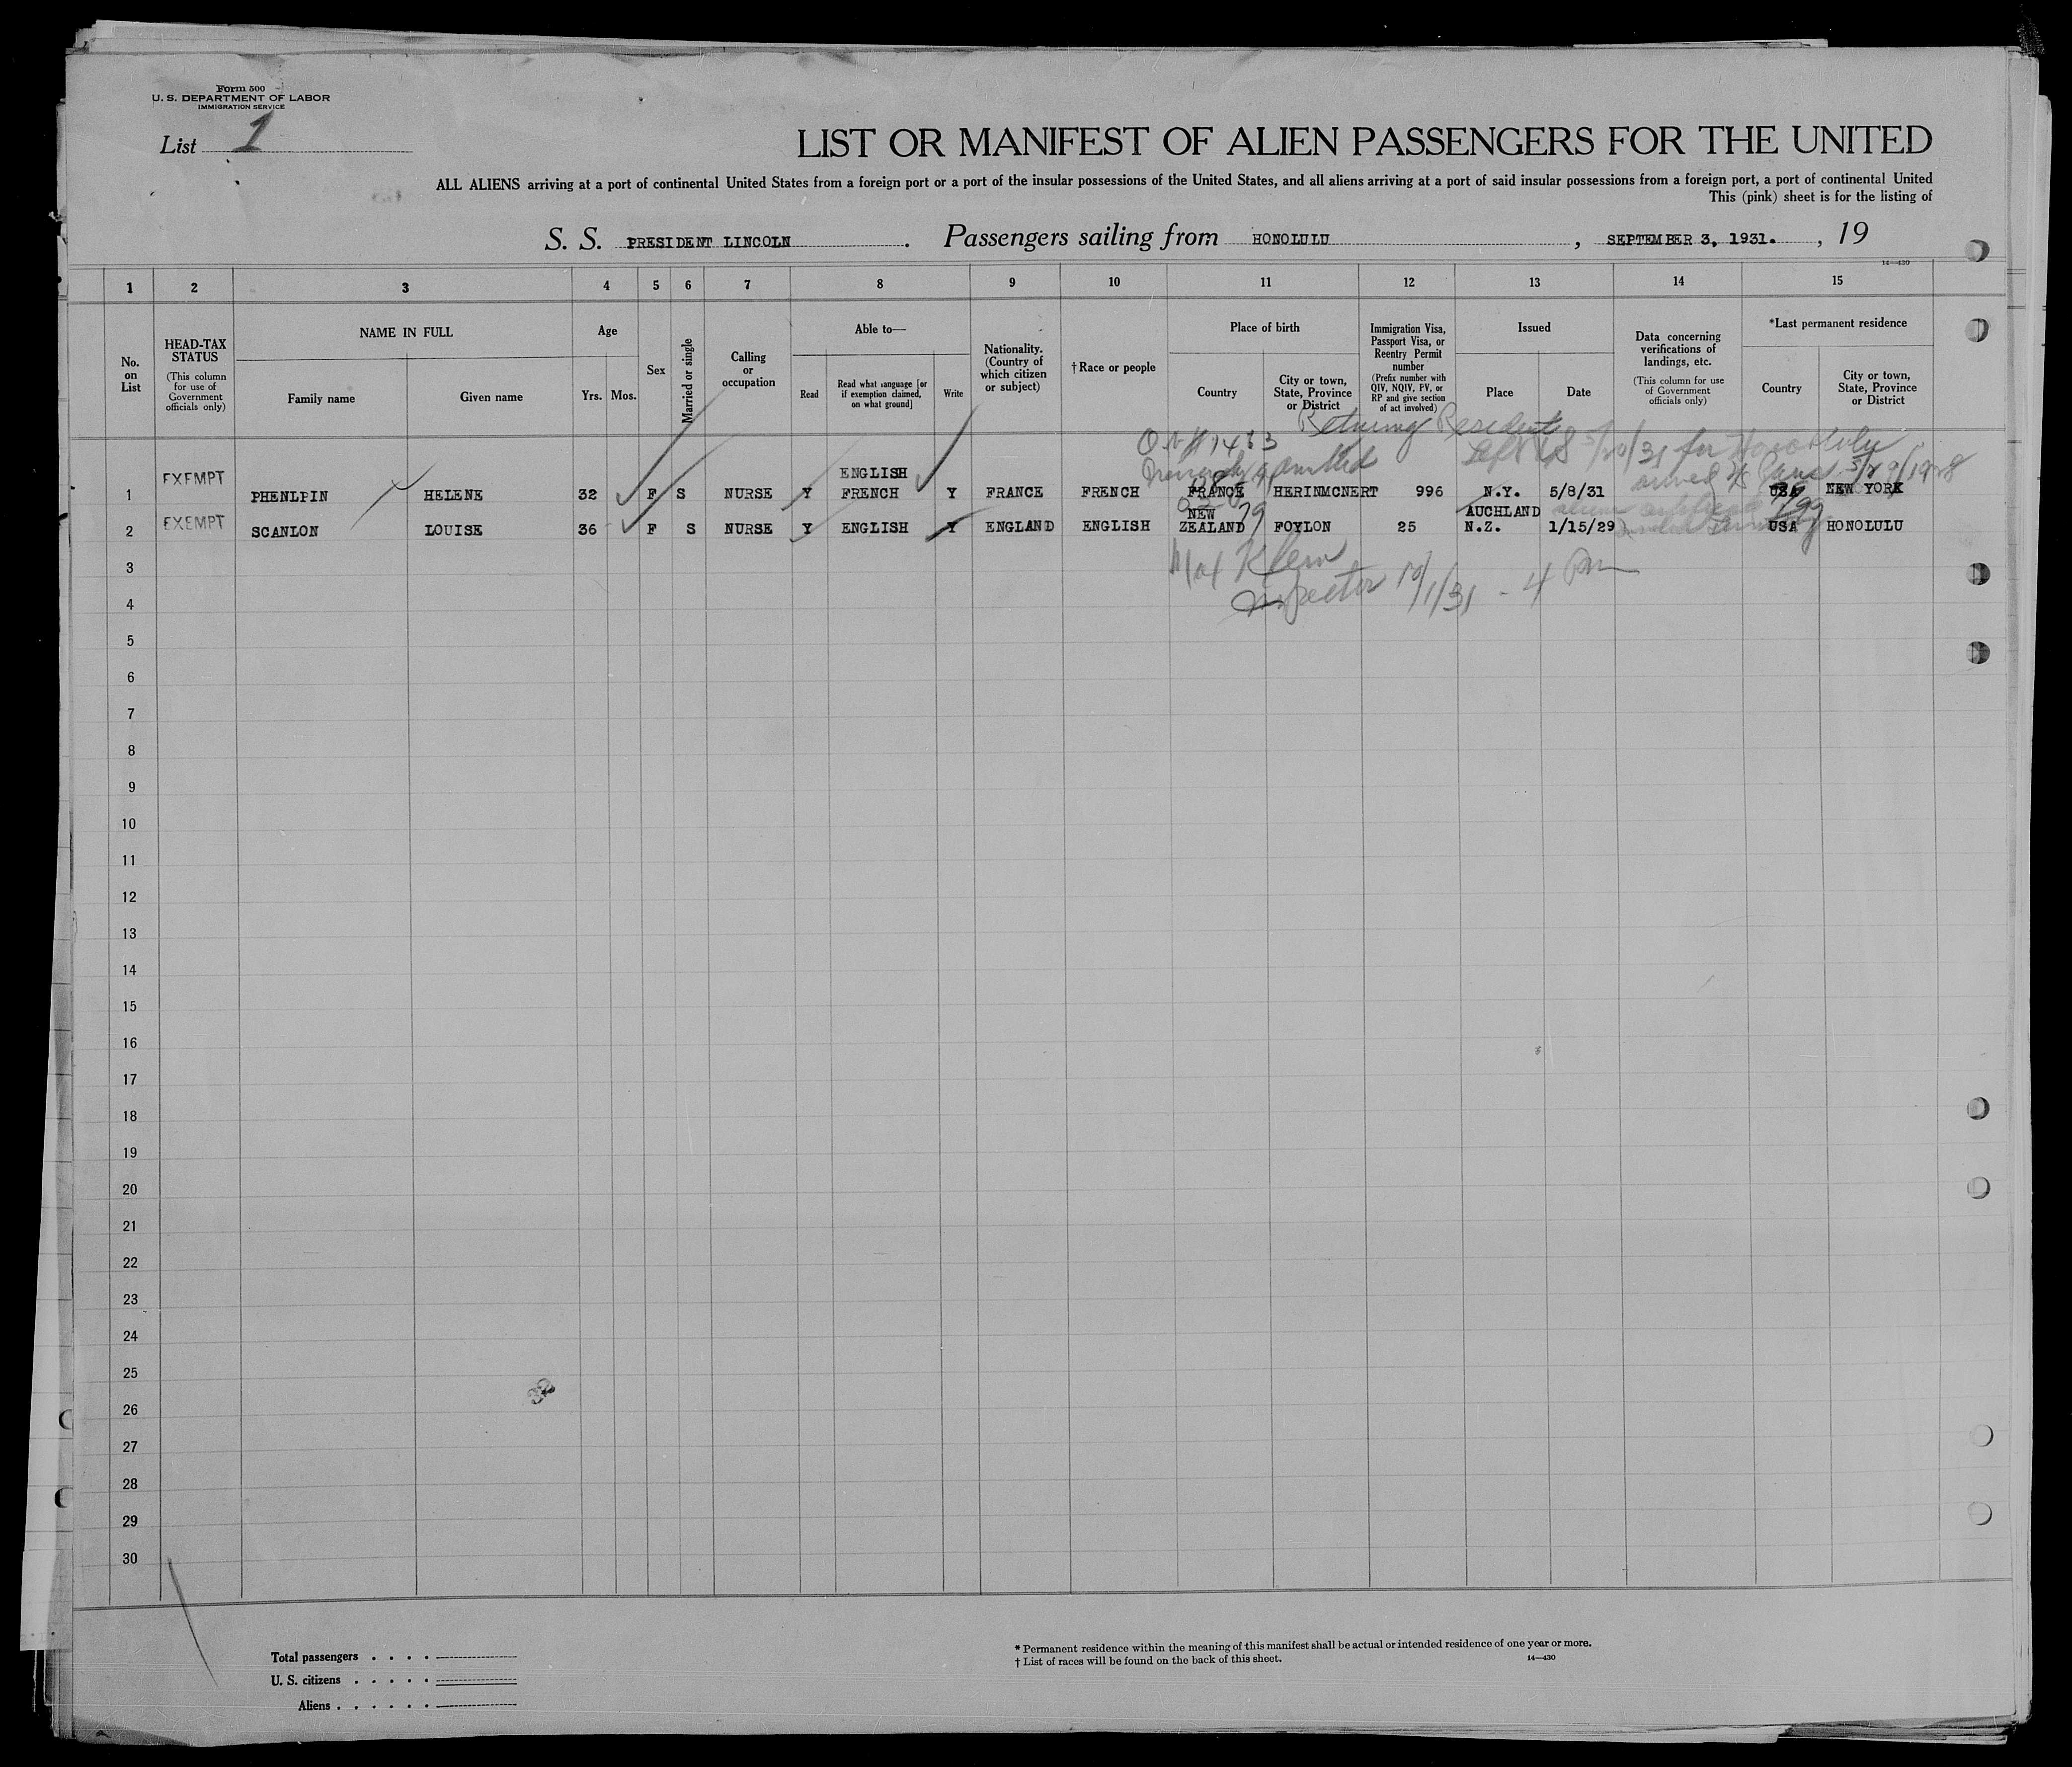 Form 500
U. S. DEPARTMENT OF LABOR
IMMIGRATION SERVICE
List 1
LIST OR MANIFEST OF ALIEN PASSENGERS FOR THE UNITED
ALL ALIENS arriving at a port of continental United States from a foreign port or a port of the insular possessions of the United States, and all aliens arriving at a port of said insular possessions from a foreign port, a port of continental United
This (pink) sheet is for the listing of
S. S. PRESIDENT LINCOLN. Passengers sailing from HONOLULU, SEPTEMBER 3, 1931., 19
14—430
1 2 3 4 5 6 7 8 9 10 11 12 13 14 15
No. on List
HEAD-TAX STATUS
(This column for use of Government officials only)
NAME IN FULL
Family name
Given name
Age
Yrs.
Mos.
Sex
Married or single
Calling or occupation
Able to—
Read
Read what language [or if exemption claimed, on what ground]
Write
Nationality. (Country of which citizen or subject)
†Race or people
Place of birth
Country
City or town, State, Province or District
Immigration Visa, Passport Visa, or Reentry Permit number
(Prefix number with QIV, NQIV, PV, or RP and give section of act involved)
Issued
Place
Date
Data concerning verifications of landings, etc.
(This column for use of Government officials only)
*Last permanent residence
Country
City or town, State, Province or District
Resident
Left US 5/20/31 for Honolulu
admitted
1 EXEMPT PHENLPIN HELENE 32 F S NURSE Y ENGLISH FRENCH Y FRANCE FRENCH FRANCE HERINMCNERT 996 N.Y. 5/8/31 USA NEW YORK
2 EXEMPT SCANLON LOUISE 36 F S NURSE Y ENGLISH Y ENGLAND ENGLISH NEW ZEALAND FOYLON 25 AUCHLAND N.Z. 1/15/29 USA HONOLULU
Klein
Inspector 10/1/31 - 4 Pm
3
4
5
6
7
8
9
10
11
12
13
14
15
16
17
18
19
20
21
22
23
24
25
26
27
28
29
30
Total passengers . . . .
U. S. citizens . . . . .
Aliens . . . . . .
* Permanent residence within the meaning of this manifest shall be actual or intended residence of one year or more.
† List of races will be found on the back of this sheet.
14—430